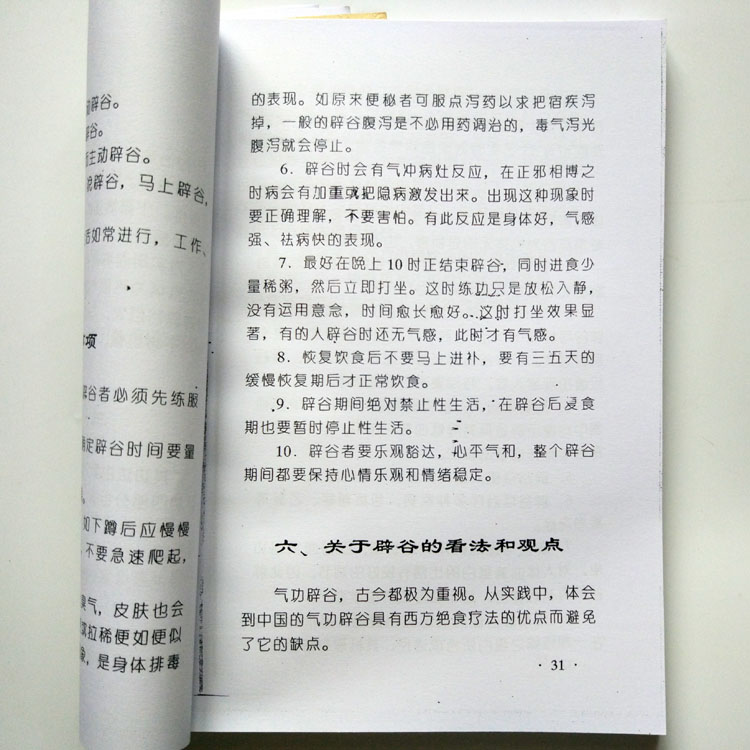 动辟谷。
辟谷。
主动辟谷。
辟谷，马上辟谷，
活如常进行，工作、
项
辟谷者必须先练服
定辟谷时间要量
如下蹲后应慢慢
，不要急速爬起，
臭气，皮肤也会
或拉稀便如便似
象，是身体排毒
的表现。如原来便秘者可服点泻药以求把宿疾泻
掉，一般的辟谷腹泻是不必用药调治的，毒气泻光
腹泻就会停止。
6．辟谷时会有气冲病灶反应，在正邪相博之
时病会有加重或把隐病激发出来。出现这种现象时
要正确理解，不要害怕。有此反应是身体好，气感
强、祛病快的表现。
7．最好在晚上10时正结束辟谷，同时进食少
量稀粥，然后立即打坐。这时练功只是放松入静，
没有运用意念，时间愈长愈好。这时打坐效果显
著，有的人辟谷时还无气感，此时才有气感。
8．恢复饮食后不要马上进补，要有三五天的
缓慢恢复期后才正常饮食。
9．辟谷期间绝对禁止性生活，在辟谷后浸食
期也要暂时停止性生活。
10．辟谷者要乐观豁达，心平气和，整个辟谷
期间都要保持心情乐观和情绪稳定。
六、关于辟谷的看法和观点
气功辟谷，古今都极为重视。从实践中，体会
到中国的气功辟谷具有西方绝食疗法的优点而避免
了它的缺点。
· 31 ·